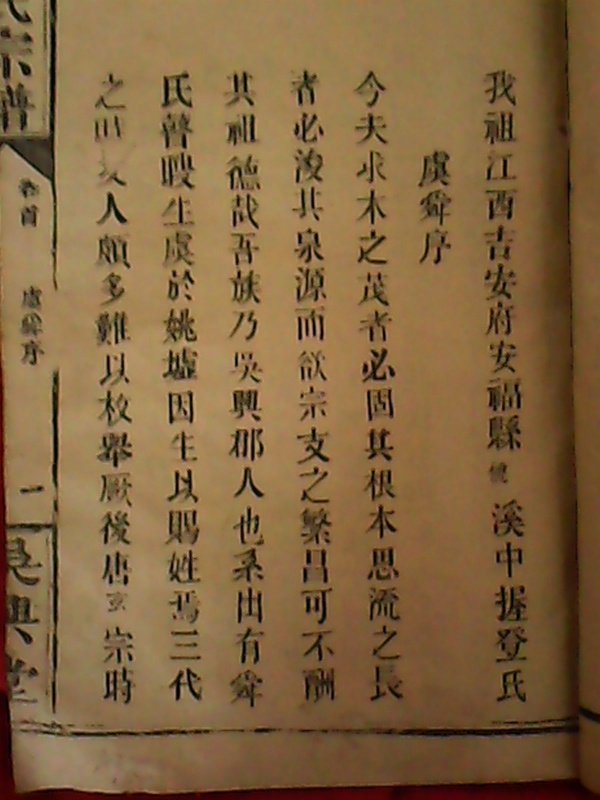 我祖江西吉安府安福縣溪中握登氏
虞舜序
今夫求木之茂者必固其根本思流之長
者必浚其泉源而欲宗支之繁昌可不酬
其祖德哉吾族乃吳興郡人也系出有舜
氏瞽瞍生虞於姚墟因生以賜姓焉三代
之人頗多難以枚舉厥後唐玄宗時
氏宗譜
卷首 虞舜序 一
吳興堂